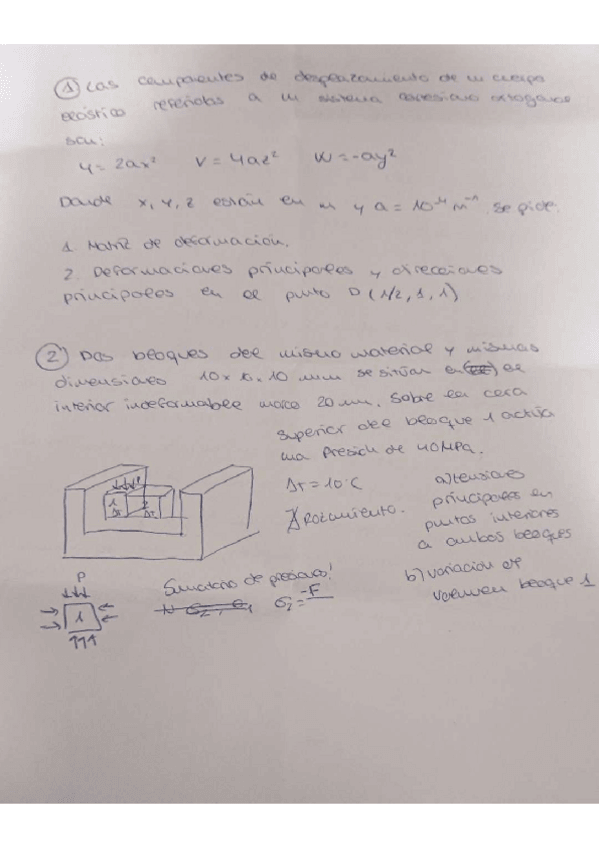 ① Las componentes de desplazamiento de un cuerpo
elástico referidas a un sistema cartesiano ortogonal
son:
u = 2ax² V = 4az² W = -ay²
Donde x, y, z están en m y a = 10⁻⁴ m⁻¹. Se pide:
1. Matriz de deformación.
2. Deformaciones principales y direcciones
principales en el punto D (1/2, 1, 1)
② Dos bloques del mismo material y mismas
dimensiones 10 x 10 x 10 mm se sitúan en el
interior indeformable marco 20 mm. Sobre la cara
superior del bloque 1 actúa
una presión de 40 MPa.
ΔT = 10°C
∄ Rozamiento.
a) tensiones
principales en
puntos interiores
a ambos bloques
b) variación de
volumen bloque 1
1
ΔT
2
ΔT
P
1
Sumatorio de presiones!
σ₂ = -F